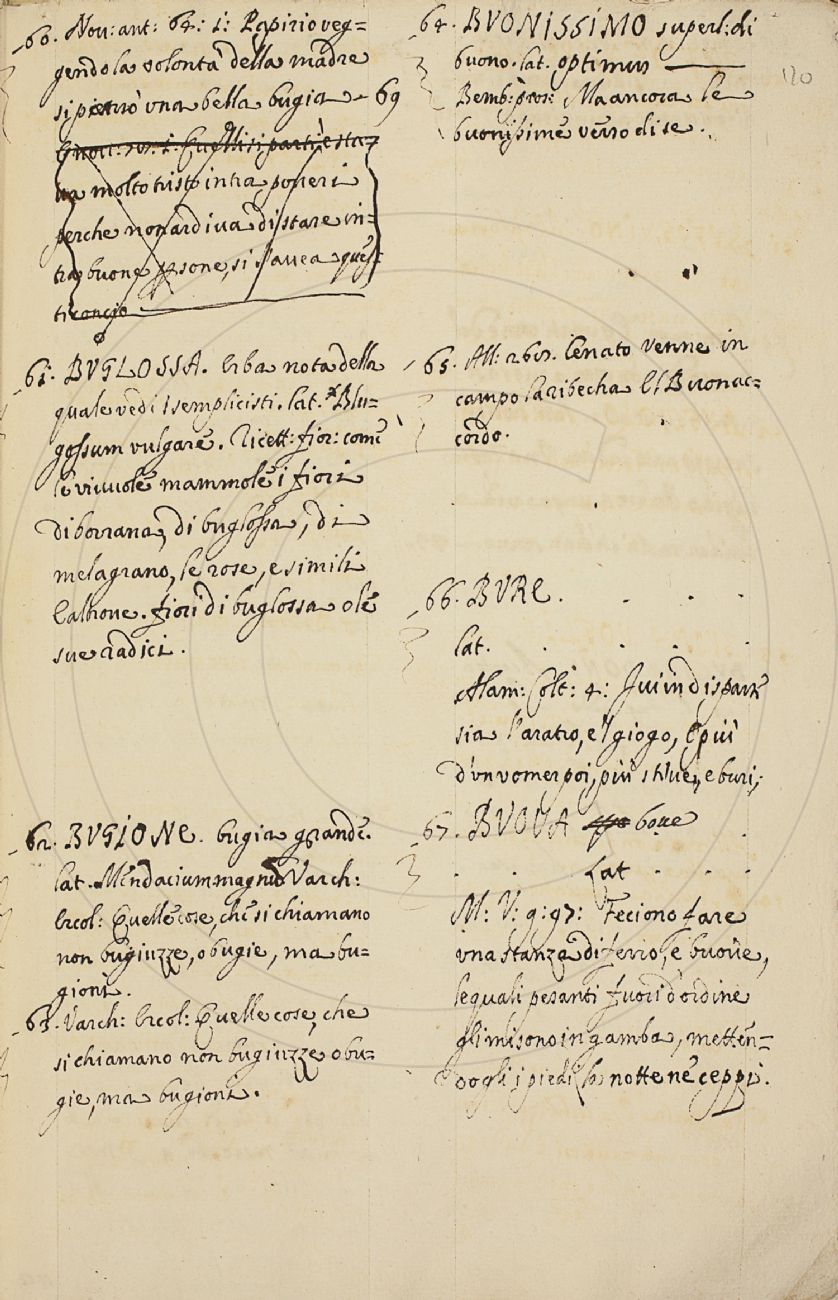 60. Nov: ant: 64: 1: Papirio veg=
gendo la volontà della madre
si pensò una bella bugia - 69
molto tristo intra poveri
perche non ardiva di stare in=
tra buone psone, si l'avea
61. BVGLOSSA. Erba nota della
quale vedi i semplicisti. lat. Blu=
gossum vulgare. Ricett: fior: come
le viuuole mammole i fiori
di borrana, di buglossa, di
melagrano, le rose, e simili
E altrove. fiori di buglossa o le
sue radici.
62. BVGIONE. bugia grande.
lat. Mendacium magnũ Varch:
Ercol: Quelle cose, che si chiamano
non bugiuzze, o bugie, ma bu=
gioni.
63. Varch: Ercol: Quelle cose, che
si chiamano non bugiuzze o bu=
gie, ma bugioni.
64. BVONISSIMO superl: di
buono. lat. optimus
Bemb: pros: Ma ancora le
buonissime verso di se.
120
65. All: 267. Cenato venne in
campo la ribecha e 'l Buonac=
cordo.
66. BVRE.
lat.
Alam: Colt: 4: Ivi in disparte
sia l'aratro, e 'l giogo, e più
d'un vomer poi, più stive, e buri;
67. BVOVA bove
lat
M: V: 9: 97: Feciono fare
una stanza di ferro, e buove,
le quali pesanti fuori d'ordine
gli misono in gamba, metten=
dogli i piedi la notte ne ceppi.